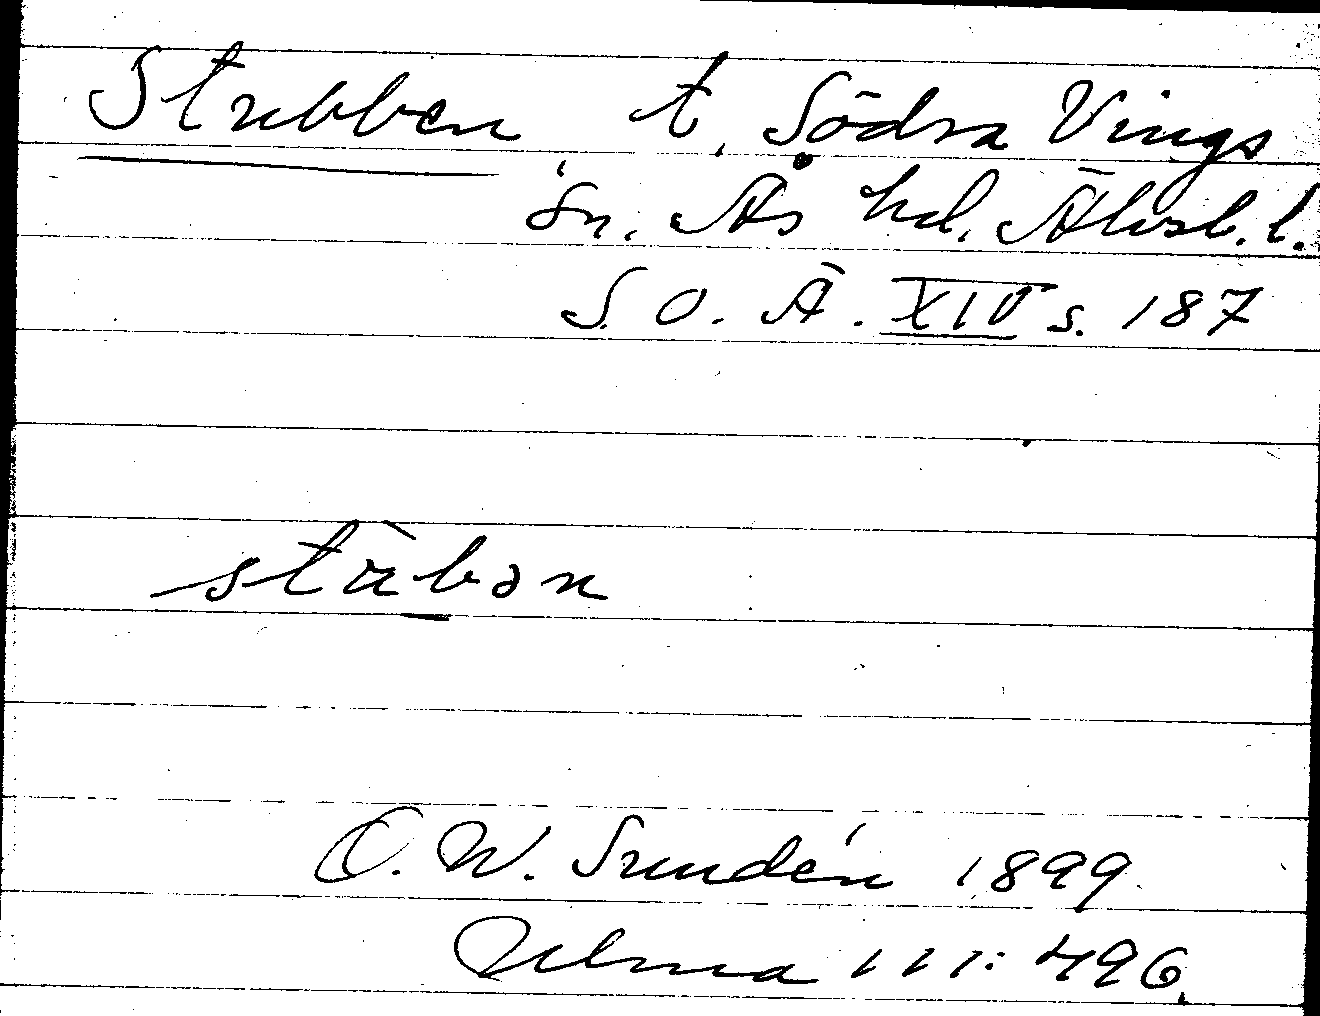 Stubben, t. Södra Vings
sn. Ås hd. Älvsb. l.
S. O. Ä. XIV s. 187
stäbən
O. W. Sundén 1899
Ulma 111:496.